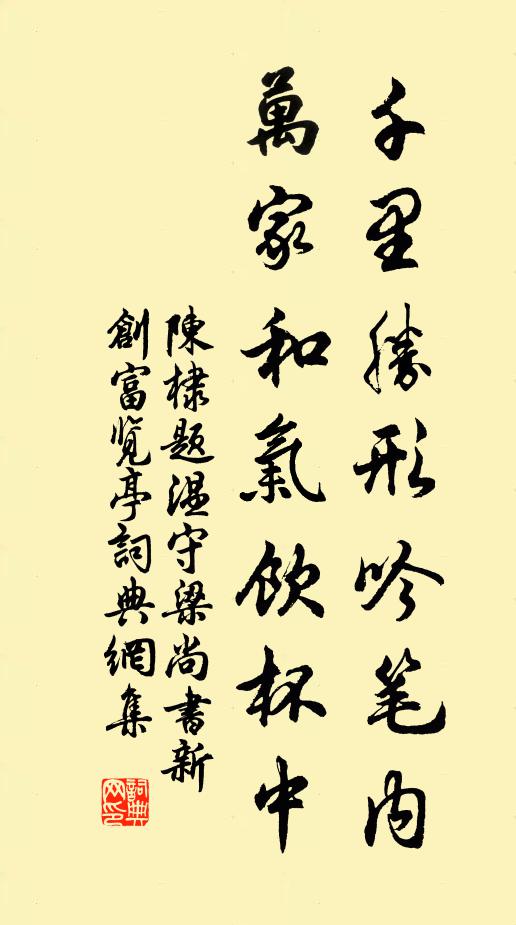 千里勝形吟笔内
萬家和氣飲杯中
陳棣题温守梁尚書新
創富览亭詞典網集
詞典
网印